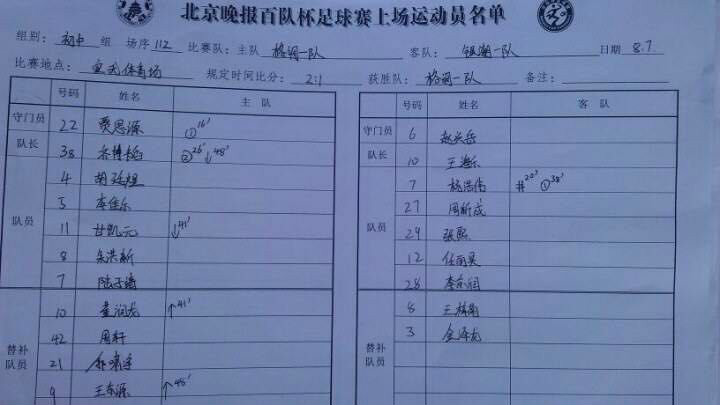 北京晚报百队杯足球赛上场运动员名单
组别: 初中 组 场序 112 比赛队: 主队 格调一队 客队: 银潮一队 日期 8.7
比赛地点: 宣武体育场 规定时间比分: 2:1 获胜队: 格调一队 备注:
号码 姓名 主 队
守门员 22 ①16′
队长 38 ②26′ ↓48′
队员
4
5 李佳乐
11 甘凯元 ↓41′
8 朱洪新
7
替补队员
10 董润龙 ↑41′
42 周轩
21
9 王东源 ↑48′
号码 姓名 客 队
守门员 6
队长 10 王瀚乐
队员
7 杨浩伟 #20′ ①38′
27 周新成
29 张熙
12 任雨昊
28
替补队员
8
3 金泽龙